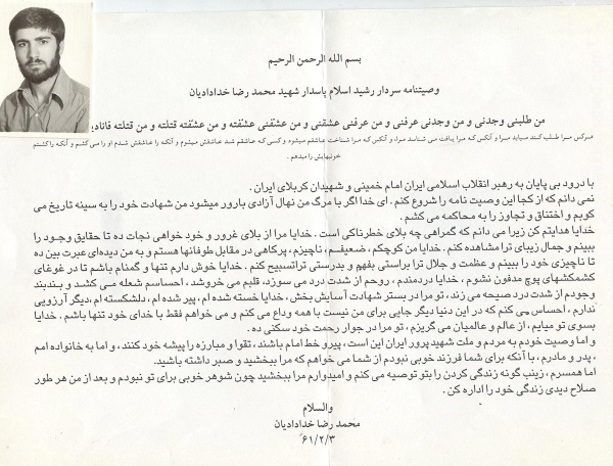 بسم الله الرحمن الرحیم
وصیتنامه سردار رشید اسلام پاسدار شهید محمد رضا خدادادیان
من طلبنی وجدنی و من وجدنی عرفنی و من عرفنی عشقنی و من عشقنی عشقته و من عشقته قتلته و من قتلته فانادیه
هرکس مرا طلب کند میابد مرا و آنکس که مرا یافت می شناسد مرا، و آنکس که مرا شناخت عاشقم میشود و کسی که عاشقم شد عاشقش میشوم و آنکه را عاشقش شدم او را می کشم و آنکه را کشتم
خونبهایش را میدهم .
با درود بی پایان به رهبر انقلاب اسلامی ایران امام خمینی و شهیدان کربلای ایران .
نمی دانم که از کجا این وصیت نامه را شروع کنم . ای خدا اگر با مرگ من نهال آزادی بارور میشود من شهادت خود را به سینه تاریخ می
کوبم و اختناق و تجاوز را به محاکمه می کشم .
خدایا هدایتم کن زیرا می دانم که گمراهی چه بلای خطرناکی است . خدایا مرا از بلای غرور و خود خواهی نجات ده تا حقایق وجود را
ببینم و جمال زیبای ترا مشاهده کنم . خدایا من کوچکم ، ضعیفم ، ناچیزم ، پرکاهی در مقابل طوفانها هستم و به من دیده‌ای عبرت بین ده
تا ناچیزی خود را ببینم و عظمت و جلال ترا براستی بفهم و بدرستی تراتسبیح کنم . خدایا خوش دارم تنها و گمنام باشم تا در غوغای
کشمکشهای پوچ مدفون نشوم ، خدایا دردمندم ، روحم از شدت درد می سوزد، قلبم می خروشد ، احساسم شعله می کشد و بندبند
وجودم از شدت درد صیحه می زند ، تو مرا در بستر شهادت آسایش بخش ، خدایا خسته شده ام ، پیر شده ام ، دلشکسته ام ،دیگر آرزویی
ندارم ، احساس می کنم که در این دنیا دیگر جایی برای من نیست با همه وداع می کنم و می خواهم فقط با خدای خود تنها باشم . خدایا
بسوی تو میایم ، از عالم و عالمیان می گریزم ، تو مرا در جوار رحمت خود سکنی ده .
و اما وصیت خودم به مردم و ملت شهید پرور ایران این است ، پیرو خط امام باشند ، تقوا و مبارزه را پیشه خود کنند ، و اما به خانواده امم
، پدر و مادرم ، با آنکه برای شما فرزند خوبی نبودم از شما می خواهم که مرا ببخشید و صبر داشته باشید.
اما همسرم ، زینب گونه زندگی کردن را بتو توصیه می کنم و امیدوارم مرا ببخشید چون شوهر خوبی برای تو نبودم و بعد از من هر طور
صلاح دیدی زندگی خود را اداره کن .
والسلام
محمد رضا خدادادیان
۶۱/۲/۳